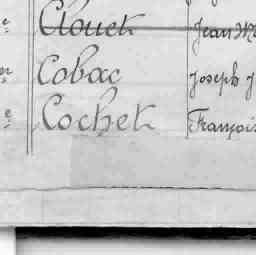 e Clouet Jean M
er Cobac Joseph J
e Cochet François